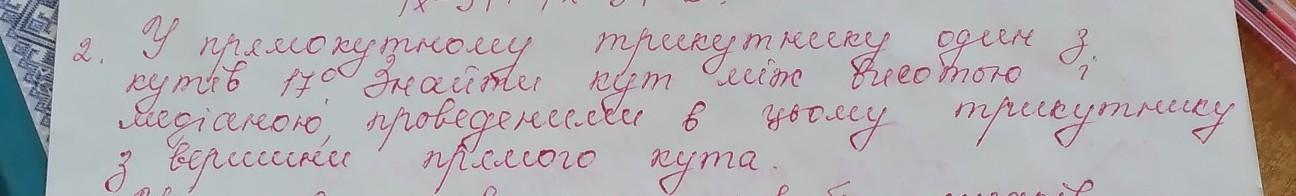 2. У прямокутному трикутнику один з
кутів 17° Знайти кут між висотою і
медіаною, проведеними в цьому трикутнику
з вершини прямого кута.